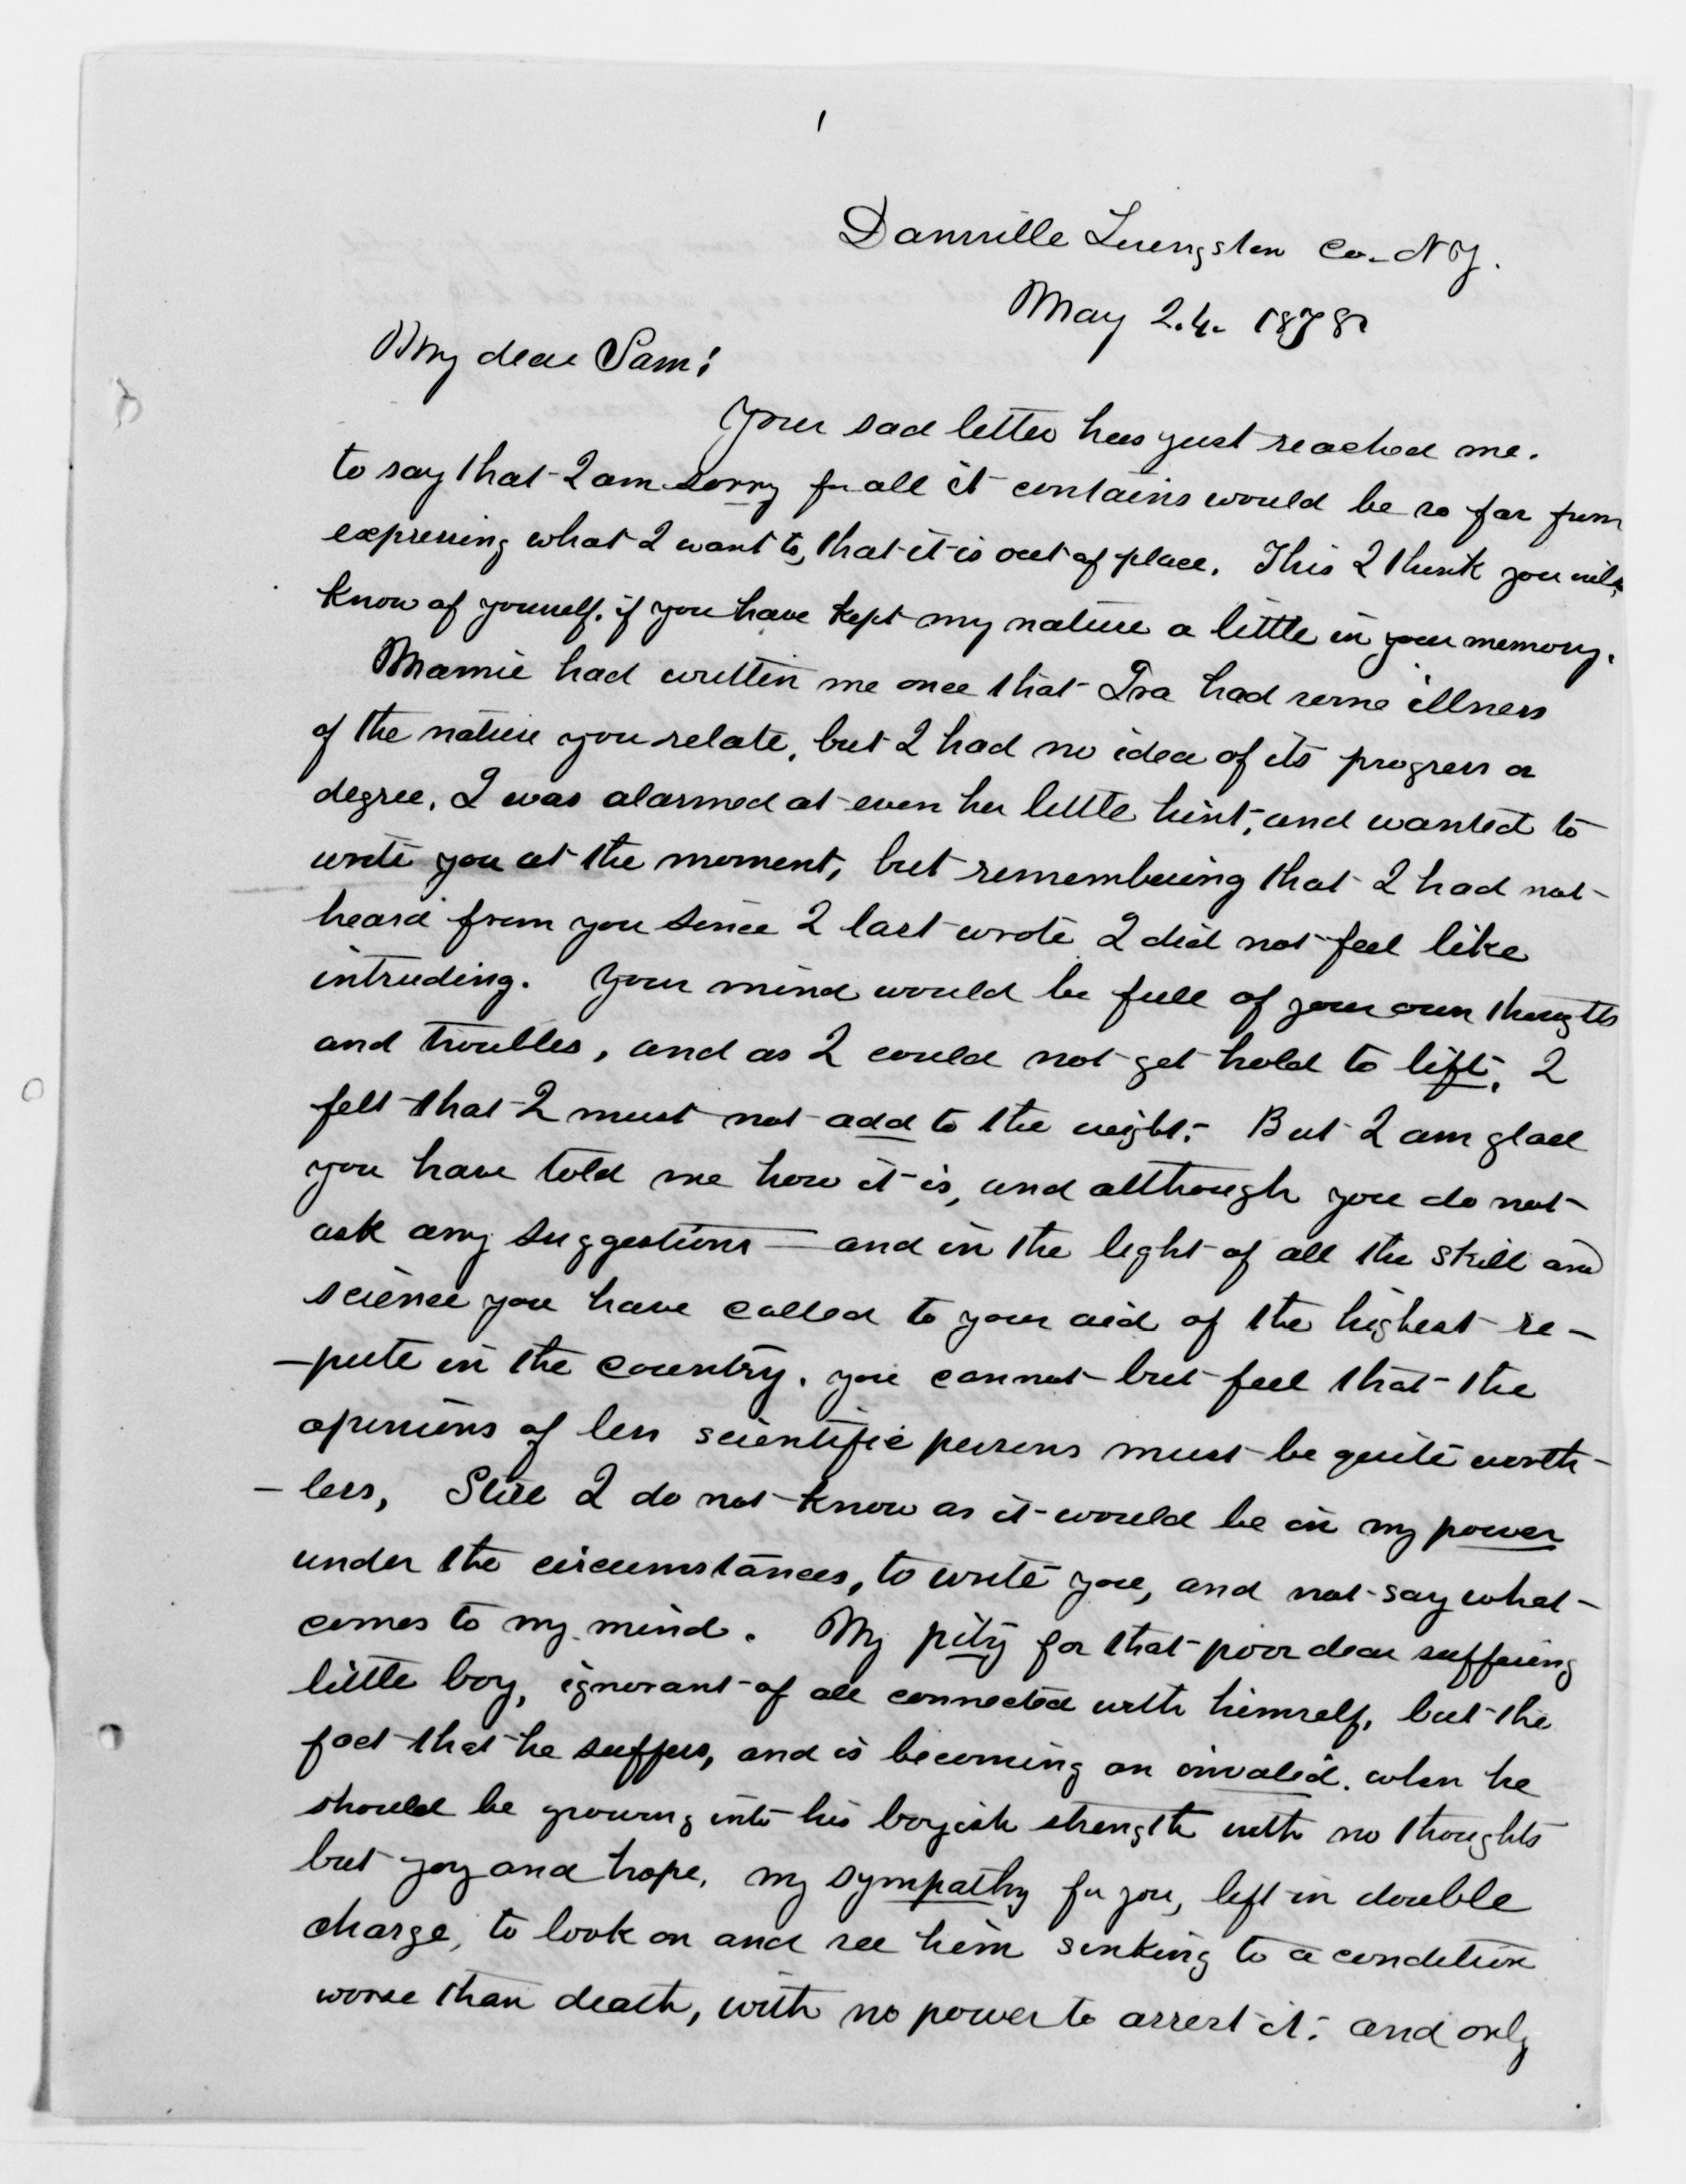 1
Dansville Livingston Co. N Y.
May 24. 1878
My dear Sam!
Your sad letter has just reached me.
to say that I am sorry for all it contains would be so far from
expressing what I want to, that it is out of place. This I think you will
know of yourself, if you have kept my nature a little in your memory.
Mamie had written me once that Ira had some illness
of the nature you relate, but I had no idea of its progress or
degree. I was alarmed at even her little hint, and wanted to
write you at the moment, but remembering that I had not
heard from you since I last wrote I did not feel like
intruding. Your mind would be full of your own thoughts
and troubles, and as I could not get hold to lift, I
felt that I must not add to the weight. But I am glad
you have told me how it is, and although you do not
ask any suggestions — and in the light of all the skill and
science you have called to your aid of the highest re-
-pute in the country. you cannot but feel that the
opinions of less scientific persons must be quite worth-
-less, Still I do not know as it would be in my power
under the circumstances, to write you, and not say what
comes to my mind. My pity for that poor dear suffering
little boy, ignorant of all connected with himself, but the
fact that he suffers, and is becoming an invalid. when he
should be growing into his boyish strength with no thoughts
but joy and hope, my sympathy for you, left in double
charge, to look on and see him sinking to a condition
worse than death, with no power to arrest it: and only